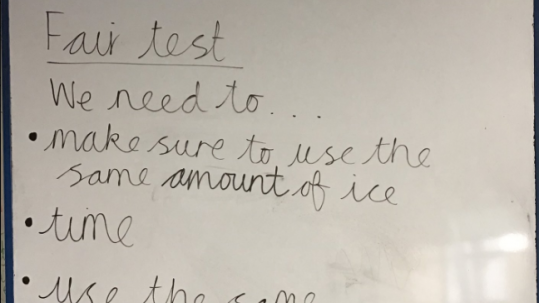 Fair test
We need to...
• make sure to use the
same amount of ice
• time
• use the same